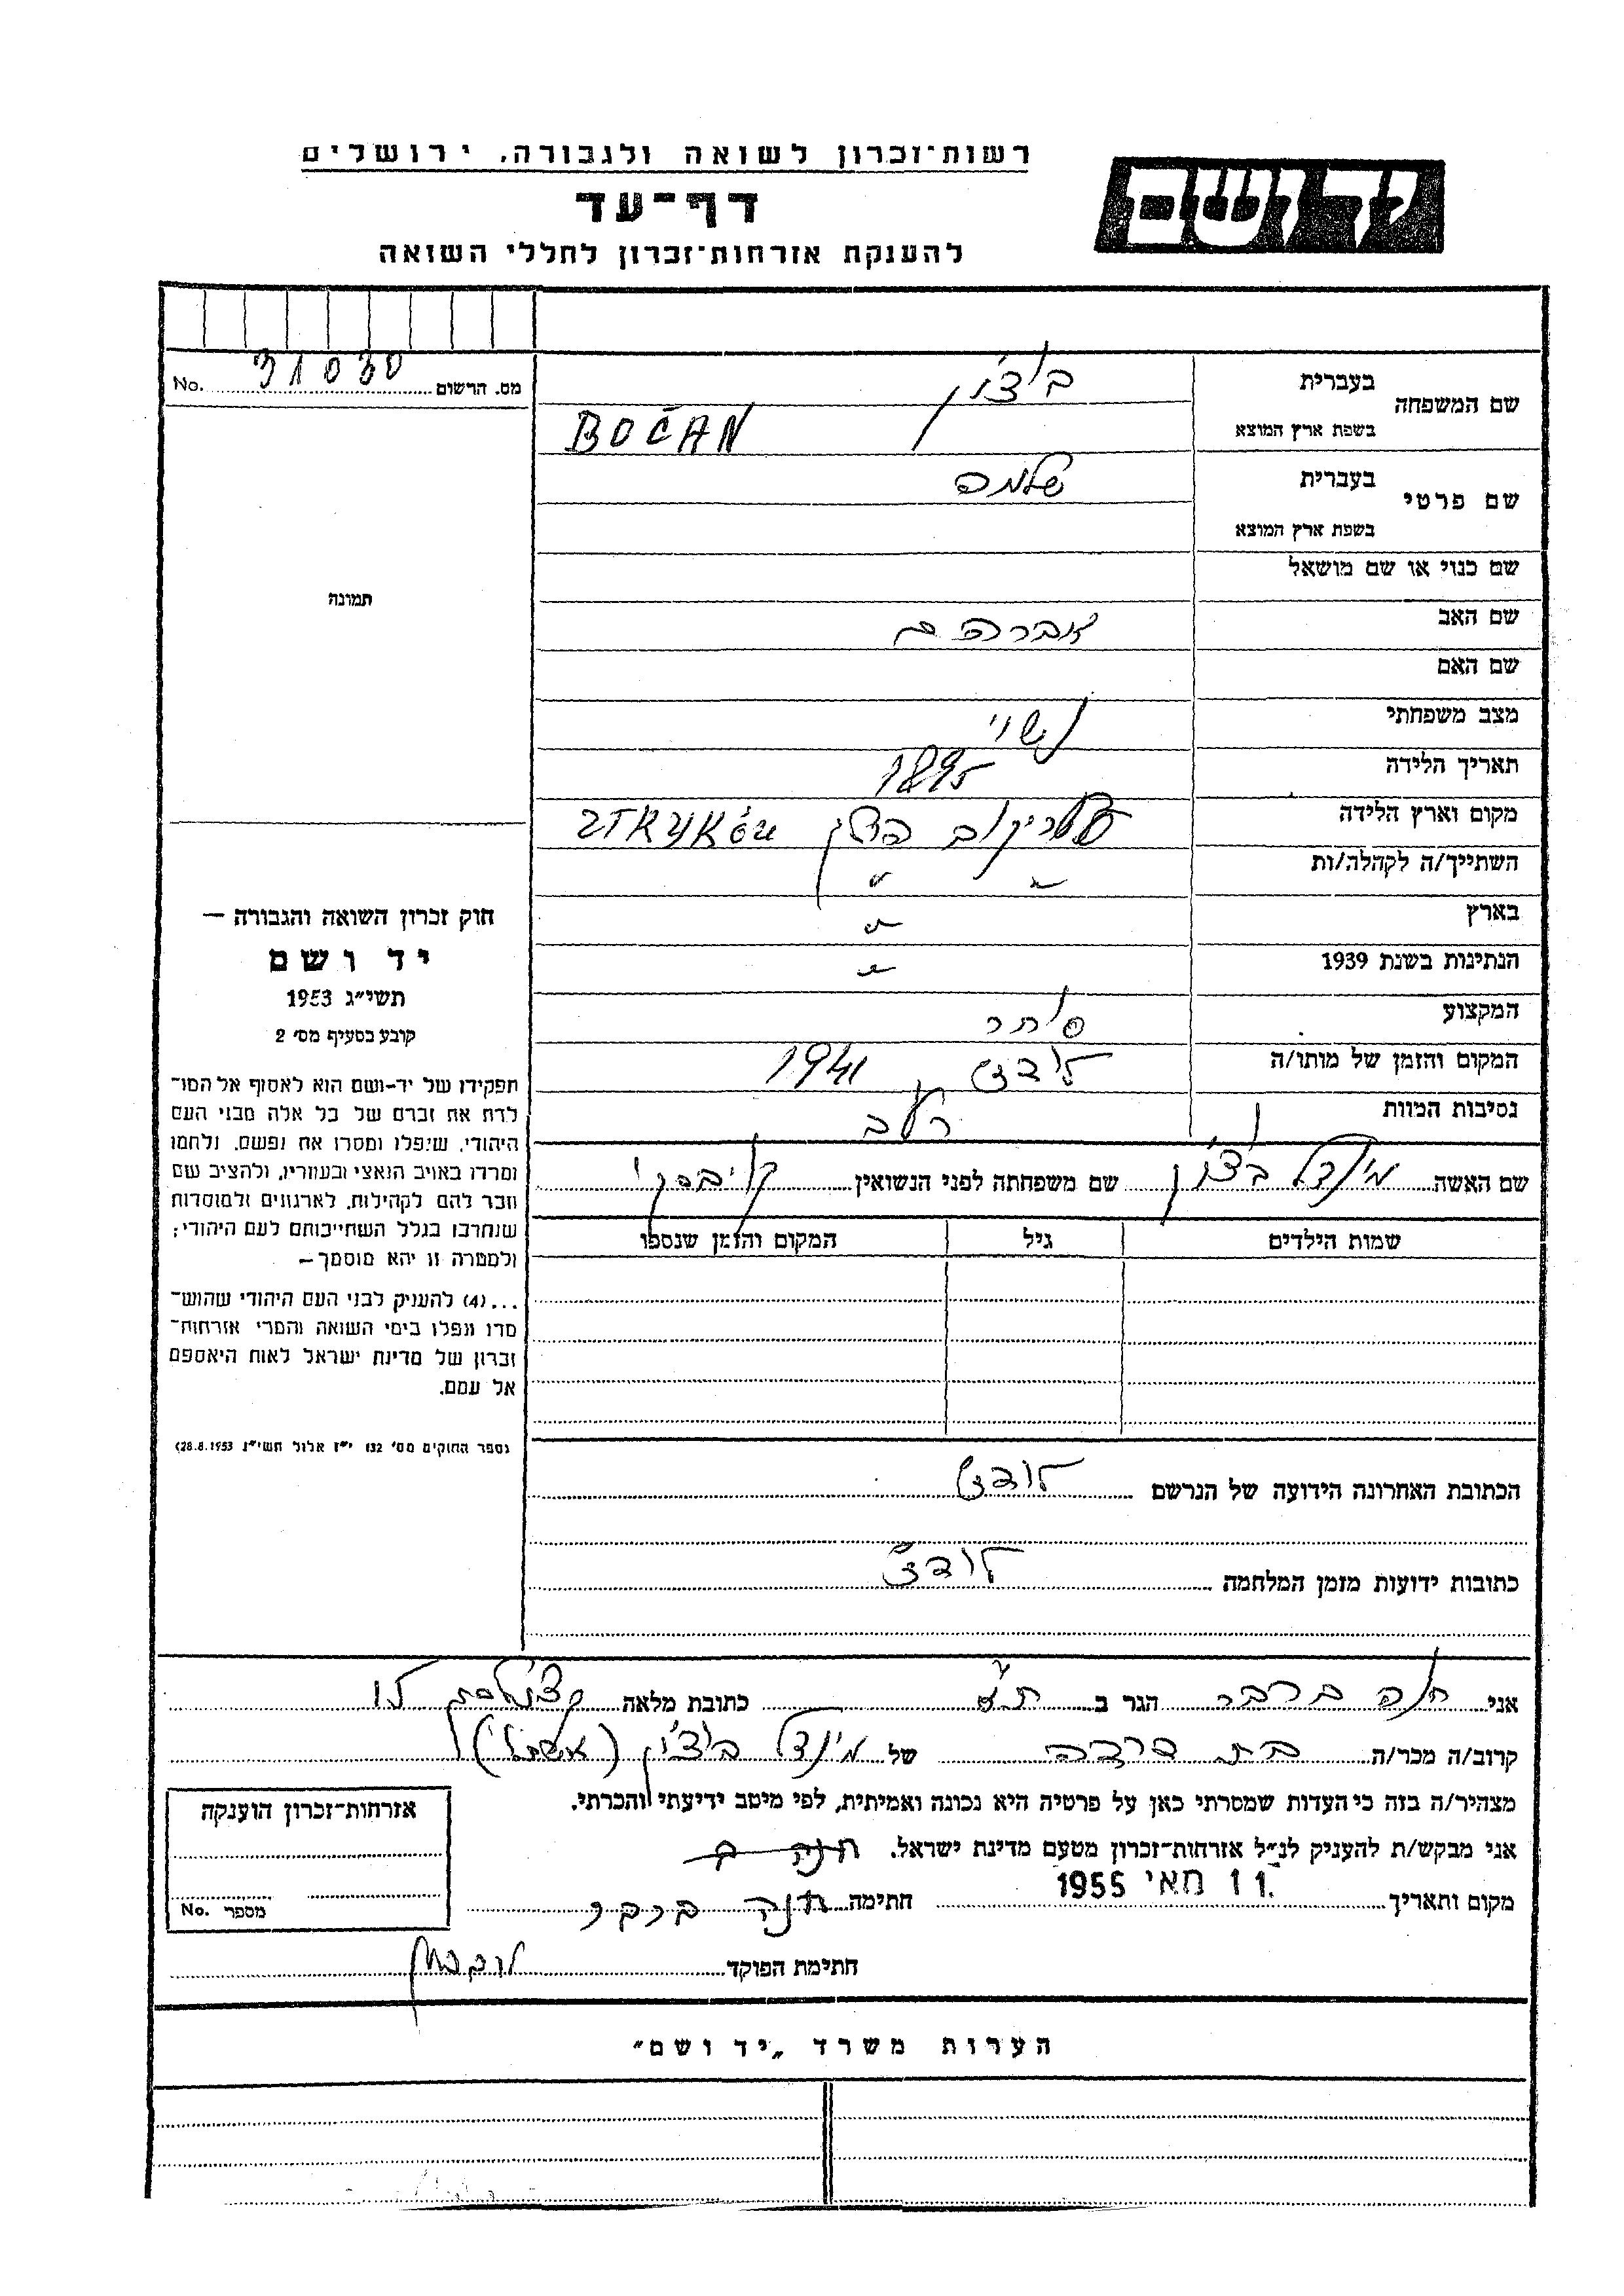 רשות־זכרון לשואה ולגבורה, ירושלים
יד ושם
דף־עד
להענקת אזרחות־זכרון לחללי השואה
מס. הרשום 31030 No.
שם המשפחה
בעברית בוצ'ן
בשפת ארץ המוצא BOĆAN
שם פרטי
בעברית שלמה
בשפת ארץ המוצא
שם כנוי או שם מושאל
תמונה
שם האב אברהם
שם האם
מצב משפחתי נשוי
תאריך הלידה 1895
מקום וארץ הלידה סטריקוב פולין
השתייך/ה לקהלה/ות " "
בארץ "
הנתינות בשנת 1939 "
המקצוע סוחר
המקום והזמן של מותו/ה לודז' 1941
נסיבות המוות רעב
שם האשה מינדל בוצ'ן שם משפחתה לפני הנשואין
שמות הילדים גיל המקום והזמן שנספו
חוק זכרון השואה והגבורה —
יד ושם
תשי"ג 1953
קובע בסעיף מס' 2
תפקידו של יד-ושם הוא לאסוף אל המו־
לדת את זכרם של כל אלה מבני העם
היהודי, שיפלו ומסרו את נפשם, נלחמו
ומרדו באויב הנאצי ובעוזריו, ולהציב שם
וזכר להם לקהילות, לארגונים ולמוסדות
שנחרבו בגלל השתייכותם לעם היהודי;
ולמטרה זו יהא מוסמך —
...(4) להעניק לבני העם היהודי שהוש־
מדו ונפלו בימי השואה והמרי אזרחות־
זכרון של מדינת ישראל לאות היאספם
אל עמם.
(ספר החוקים מס' 132 י"ז אלול תשי"ג 28.8.1953)
הכתובת האחרונה הידועה של הנרשם לודז'
כתובות ידועות מזמן המלחמה לודז'
אני חנה ברבר הגר ב ת"א כתובת מלאה
קרוב/ה מכר/ה בת דודה של מינדל בוצ'ן (אשתו)
מצהיר/ה בזה כי העדות שמסרתי כאן על פרטיה היא נכונה ואמיתית, לפי מיטב ידיעתי והכרתי.
אני מבקש/ת להעניק לנ"ל אזרחות־זכרון מטעם מדינת ישראל. חנה ב
מקום ותאריך 11 מאי 1955 חתימה חנה ברבר
חתימת הפוקד
אזרחות־זכרון הוענקה
מספר No.
הערות משרד „יד ושם"